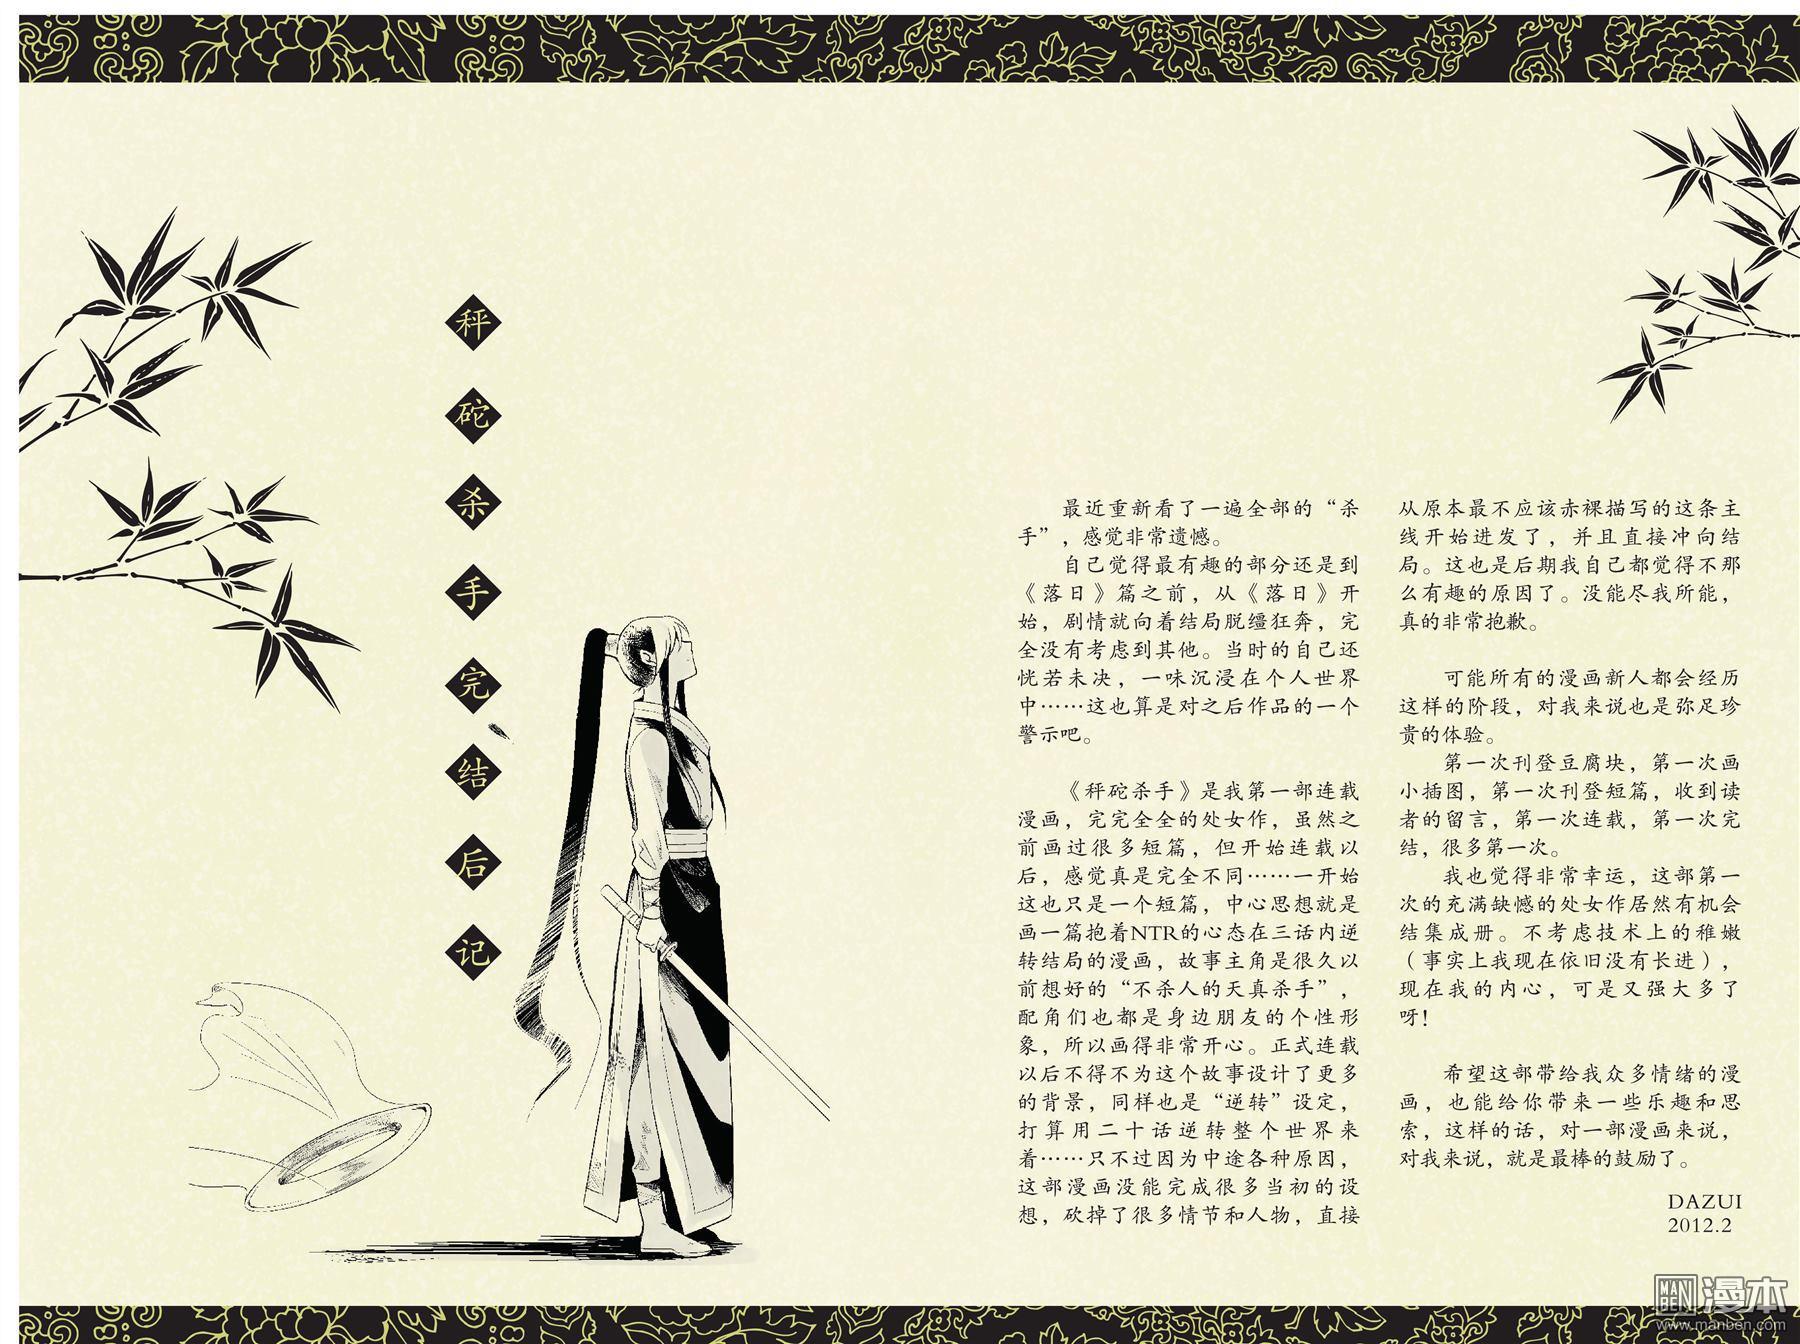 秤砣杀手完结后记
最近重新看了一遍全部的“杀
手”，感觉非常遗憾。
自己觉得最有趣的部分还是到
《落日》篇之前，从《落日》开
始，剧情就向着结局脱缰狂奔，完
全没有考虑到其他。当时的自己还
恍若未决，一味沉浸在个人世界
中……这也算是对之后作品的一个
警示吧。
《秤砣杀手》是我第一部连载
漫画，完完全全的处女作，虽然之
前画过很多短篇，但开始连载以
后，感觉真是完全不同……一开始
这也只是一个短篇，中心思想就是
画一篇抱着NTR的心态在三话内逆
转结局的漫画，故事主角是很久以
前想好的“不杀人的天真杀手”，
配角们也都是身边朋友的个性形
象，所以画得非常开心。正式连载
以后不得不为这个故事设计了更多
的背景，同样也是“逆转”设定，
打算用二十话逆转整个世界来
着……只不过因为中途各种原因，
这部漫画没能完成很多当初的设
想，砍掉了很多情节和人物，直接
从原本最不应该赤裸描写的这条主
线开始进发了，并且直接冲向结
局。这也是后期我自己都觉得不那
么有趣的原因了。没能尽我所能，
真的非常抱歉。
可能所有的漫画新人都会经历
这样的阶段，对我来说也是弥足珍
贵的体验。
第一次刊登豆腐块，第一次画
小插图，第一次刊登短篇，收到读
者的留言，第一次连载，第一次完
结，很多第一次。
我也觉得非常幸运，这部第一
次的充满缺憾的处女作居然有机会
结集成册。不考虑技术上的稚嫩
（事实上我现在依旧没有长进），
现在我的内心，可是又强大多了
呀！
希望这部带给我众多情绪的漫
画，也能给你带来一些乐趣和思
索，这样的话，对一部漫画来说，
对我来说，就是最棒的鼓励了。
DAZUI
2012.2
MANBEN 漫本
www.manben.com